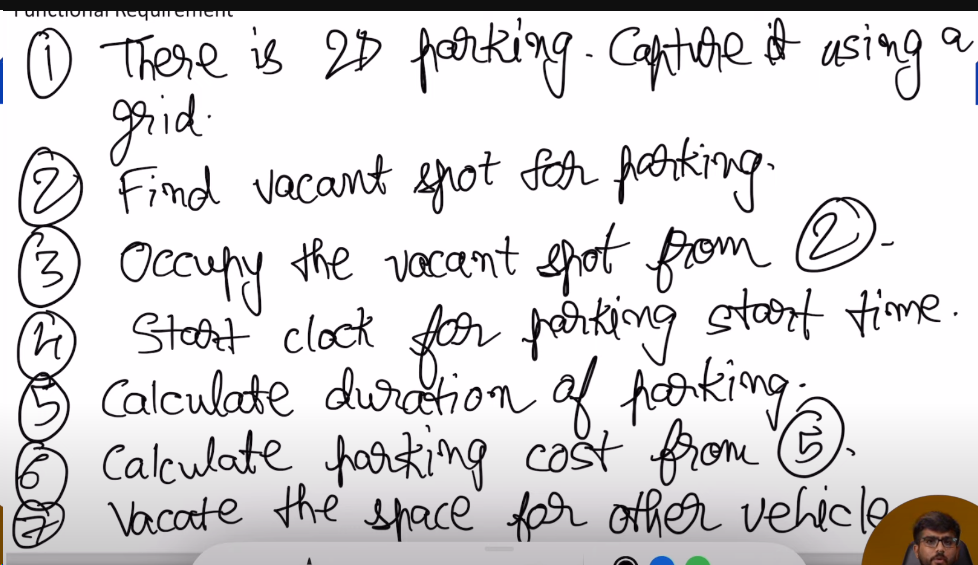 Functional Requirement
1 There is 2D parking. Capture it using a
grid.
2 Find vacant spot for parking.
3 Occupy the vacant spot from 2.
4 Start clock for parking start time.
5 Calculate duration of parking.
6 Calculate parking cost from 5.
7 Vacate the space for other vehicle